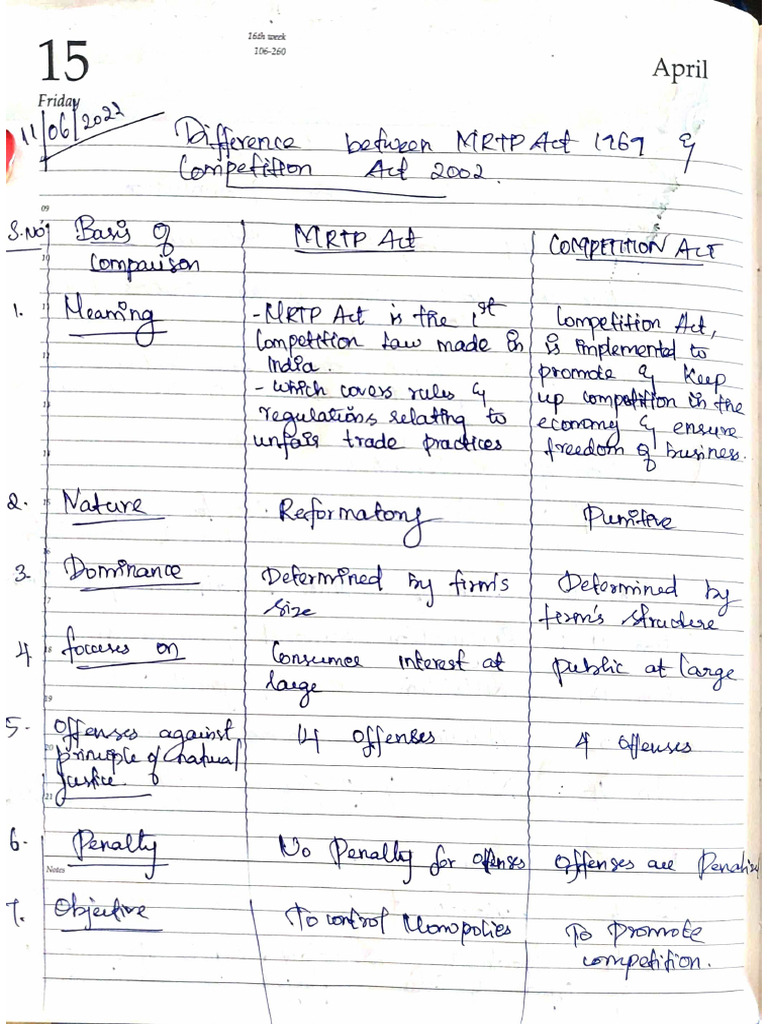 16th week
106-260
15
April
Friday
11/06/2022
Difference between MRTP Act 1969 &
Competition Act 2002.
09
S.No
Basis of
Comparison
MRTP Act
COMPETITION ACT
10
1.
Meaning
- MRTP Act is the 1st
Competition Law made in
India.
- Which covers rules &
regulations relating to
unfair trade practices
Competition Act,
is implemented to
promote & Keep
up competition in the
economy & ensure
freedom of business.
11
12
13
14
2.
Nature
Reformatory
Punitive
15
16
3.
Dominance
Determined by firm's
size
Determined by
firm's structure
17
4
focuses on
Consumer interest at
large
public at large
18
19
5.
Offenses against
principle of Natural
Justice
14 offenses
4 offenses
20
21
6.
Penalty
No Penalty for offenses
Offenses are Penalized
Notes
7.
Objective
To control Monopolies
To promote
competition.